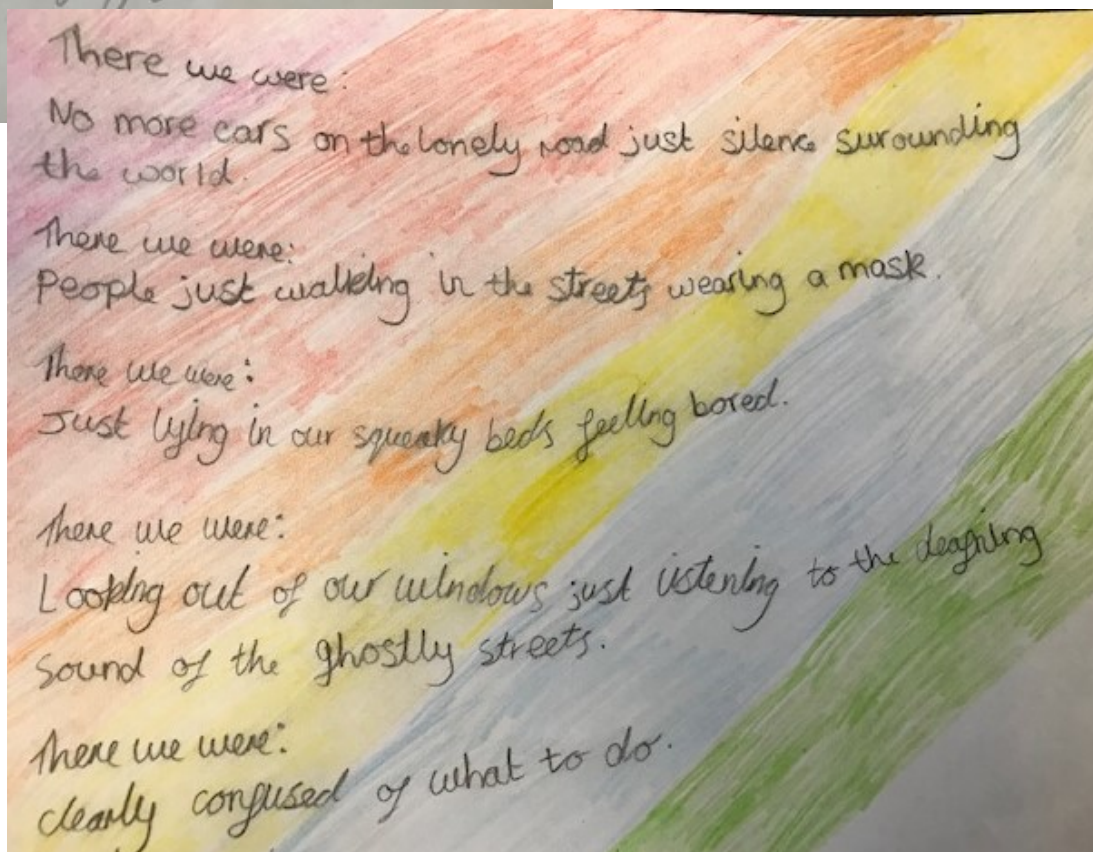 There we were:
No more cars on the lonely road just silence surounding
the world.
There we were:
People just walking in the streets wearing a mask.
There we were:
Just lying in our squeaky beds feeling bored.
There we were:
Looking out of our windows just listening to the deafning
sound of the ghostly streets.
There we were:
clearly confused of what to do.